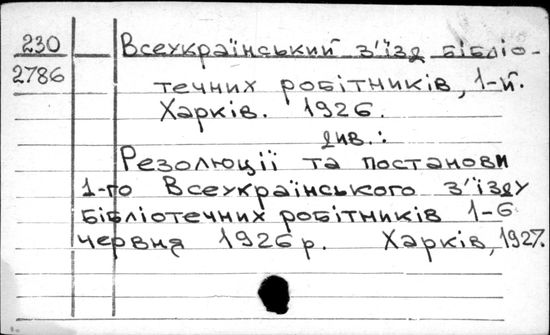 230
2786
Всеукраїнський з'їзд бібліо-
течних робітників, 1-й.
Харків. 1926.
див.:
Резолюції та постанови
1-го Всеукраїнського з'їзду
бібліотечних робітників 1-6
червня 1926 р. Харків, 1927.